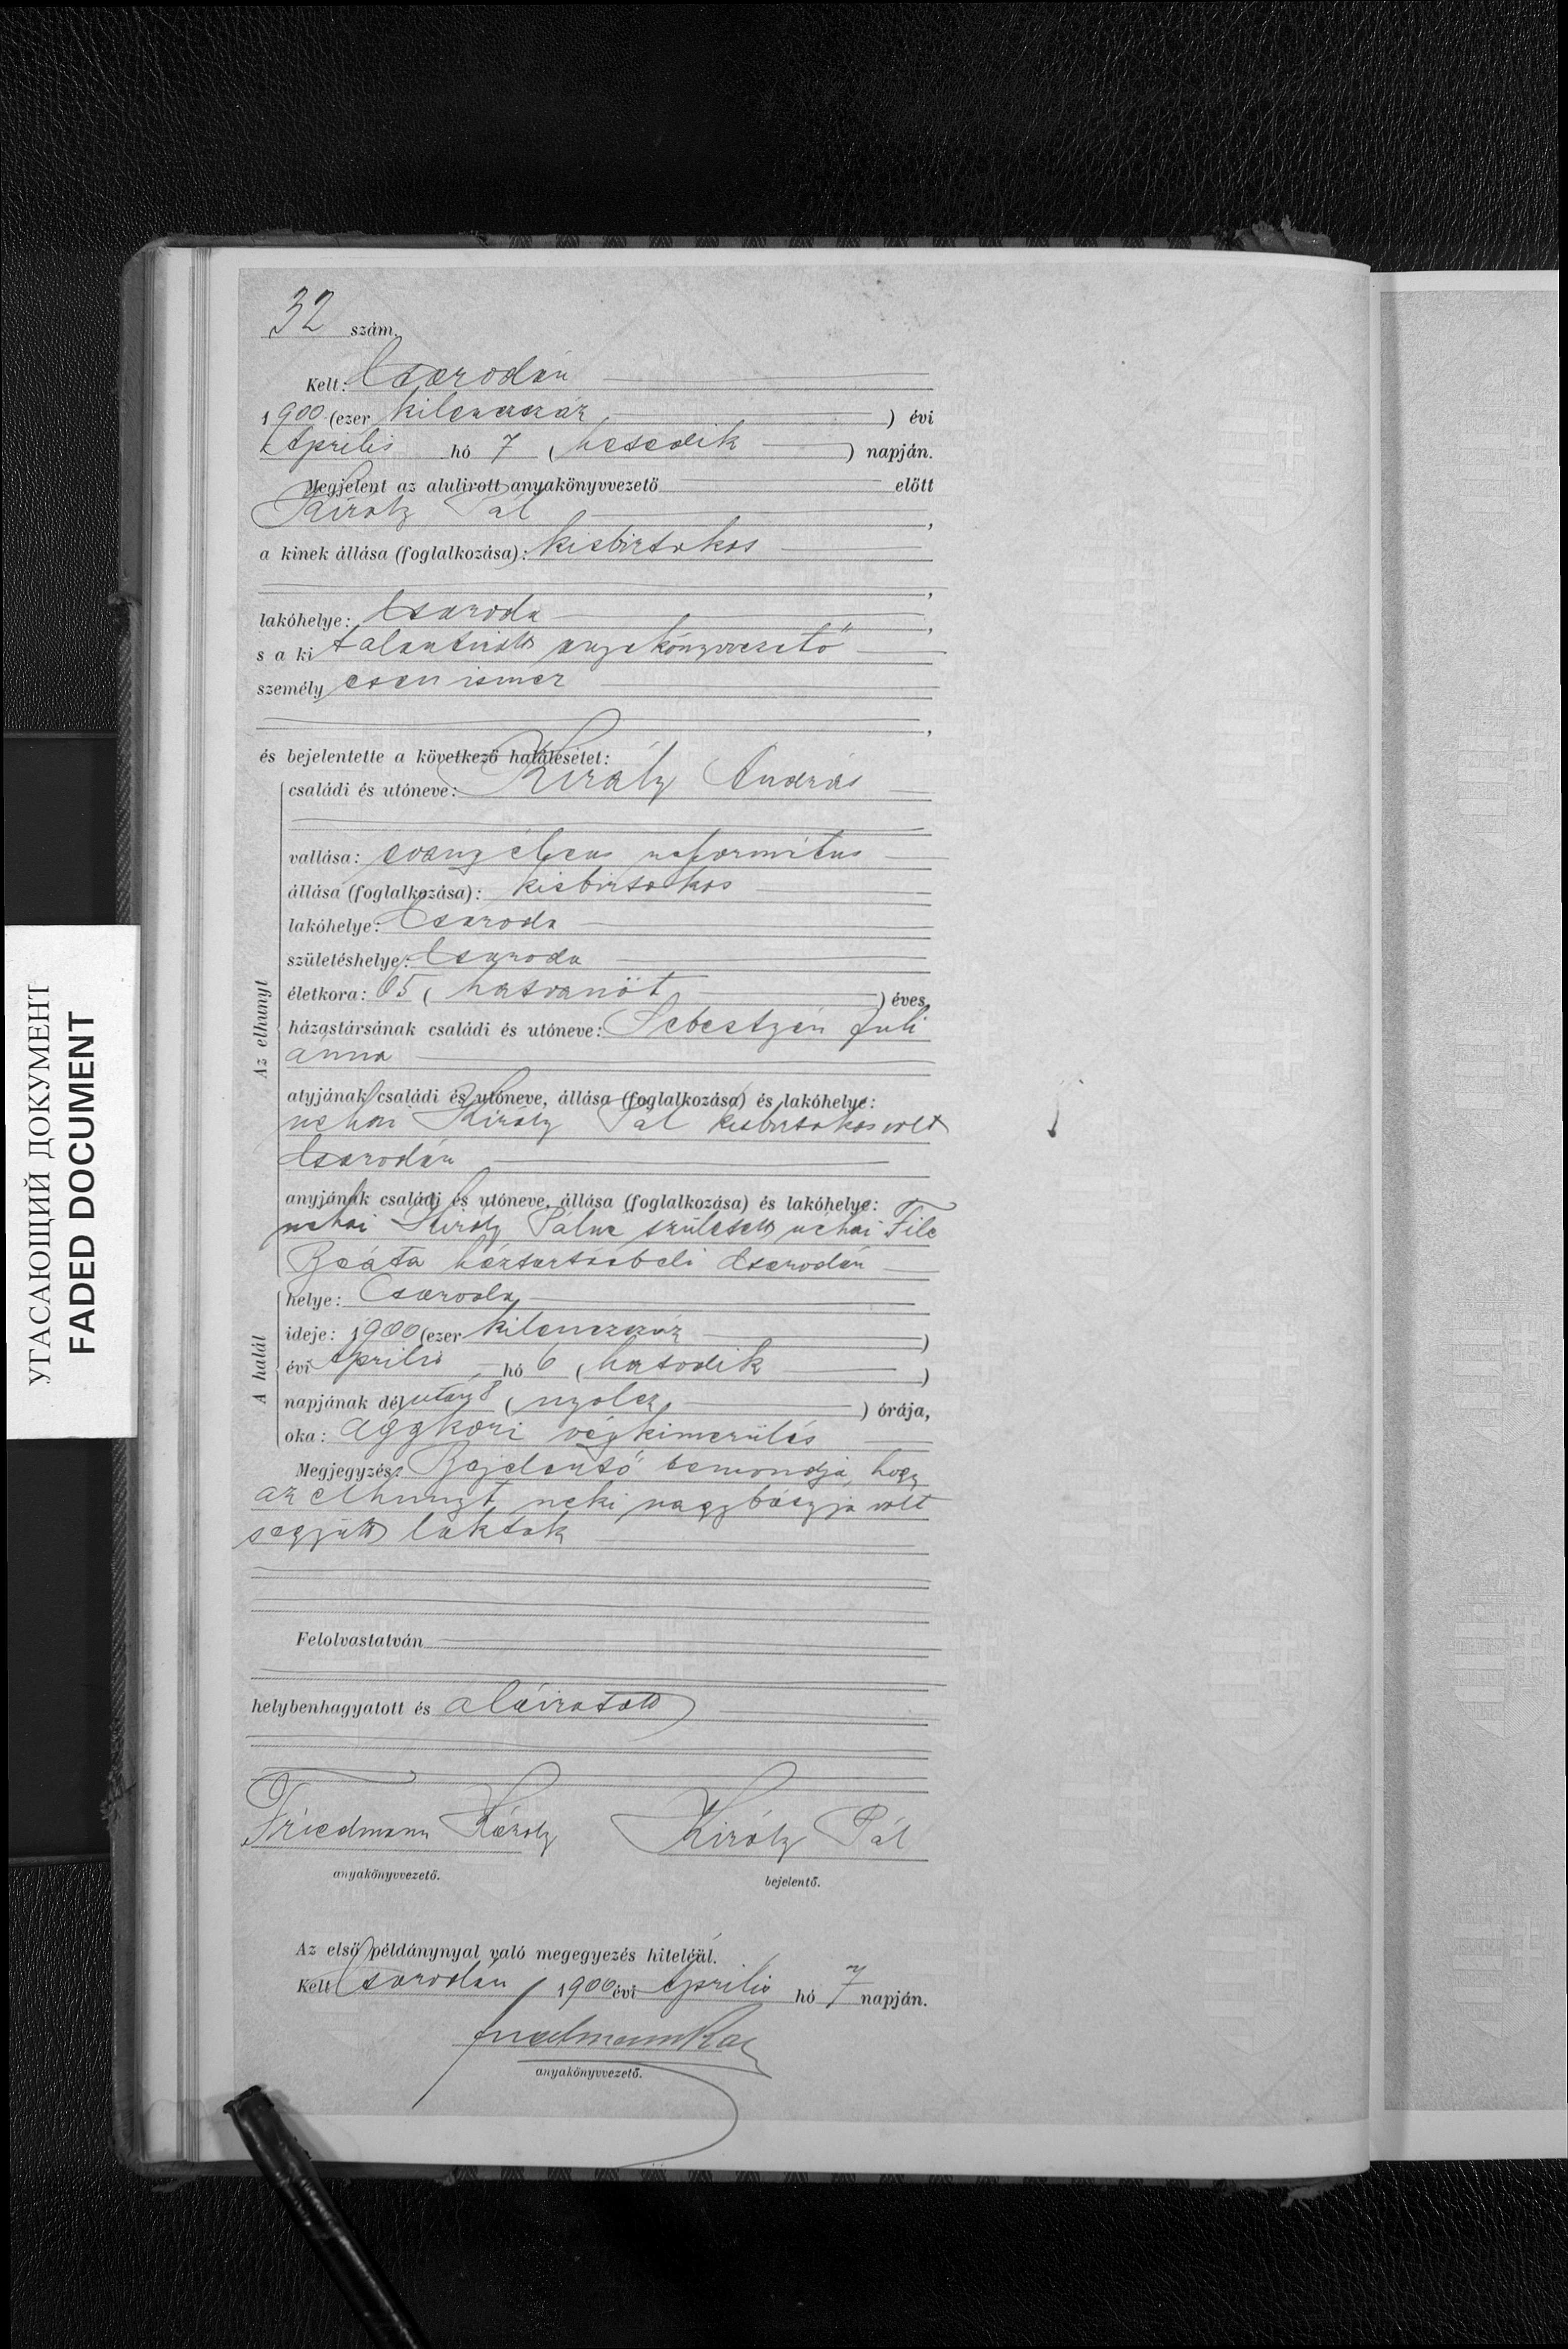 32 szám.
Kelt: Csarodán
1900 (ezer kilenczszáz ) évi
Április hó 7 (hetedik ) napján.
Megjelent az alulirott anyakönyvvezető előtt
Király Pál ,
a kinek állása (foglalkozása): kisbirtokos
,
lakóhelye: Csaroda ,
s a kit alantirott anyakönyvvezető
személyesen ismer
,
és bejelentette a következő halálesetet:
Az elhunyt
családi és utóneve: Király András
vallása: evangélicus református
állása (foglalkozása): kisbirtokos
lakóhelye: Csaroda
születéshelye: Csaroda
életkora: 65 (hatvanöt ) éves,
házastársának családi és utóneve: Sebestyén Juli
ánna
atyjának családi és utóneve, állása (foglalkozása) és lakóhelye:
néhai Király Pál kisbirtokos volt
Csarodán
anyjának családi és utóneve, állása (foglalkozása) és lakóhelye:
néhai Király Pálné született néhai File
Beáta háztartásbeli Csarodán
A halál
helye: Csaroda
ideje: 1900 (ezer kilenczszáz )
évi Április hó 6 (hatodik )
napjának délután 8 (nyolcz ) órája,
oka: aggkori végkimerülés
Megjegyzés: Bejelentő bemondja, hogy
az elhunyt neki nagybátyja volt
s együtt laktak
Felolvastatván
helybenhagyatott és aláiratott
Friedmann Károly Király Pál
anyakönyvvezető. bejelentő.
Az első példánynyal való megegyezés hiteléül.
Kelt Csarodán 1900 évi Április hó 7 napján.
anyakönyvvezető.
УГАСАЮЩИЙ ДОКУМЕНТ
FADED DOCUMENT